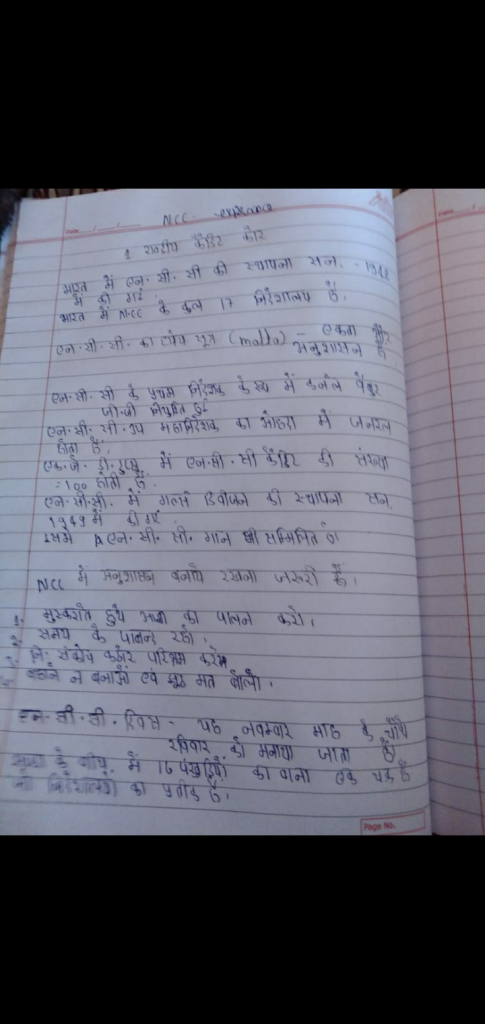 NCC
Date / /
1 राष्ट्रीय कैडेट कोर
भारत में एन·सी·सी की स्थापना सन. - 1948
में की गई
भारत में NCC के कुल 17 निदेशालय हैं.
एन·सी·सी·का ध्येय सूत्र (motto) - एकता और
अनुशासन है
एन·सी·सी के प्रथम निर्देशक के रूप में कर्नल
जी·जी नियुक्ति हुई
एन·सी·सी·उप महानिदेशक का ओहदा में जनरल
होता है.
एफ·जे·डी·ट्रुप में एन·सी·सी कैडेट की संख्या
=100 होती है.
एन·सी·सी. में गर्ल्स डिवीजन की स्थापना सन.
1949 में की गई.
इसमें एन·सी·सी. गान भी सम्मिलित है।
NCC में अनुशासन बनाये रखना जरूरी है।
1. मुस्कराते हुये आज्ञा का पालन करो.
2. समय के पाबन्द रहो.
3. नि: संकोच कठोर परिश्रम करो
4. बहाने न बनाओ एवं झूठ मत बोलो.
एन·सी·सी. दिवस - यह नवम्बार माह के चौथे
रविवार को मनाया जाता है।
के बीच में 16 पंखुड़ियों का एक चक्र है
जो निदेशालयों का प्रतीक है.
Page No.